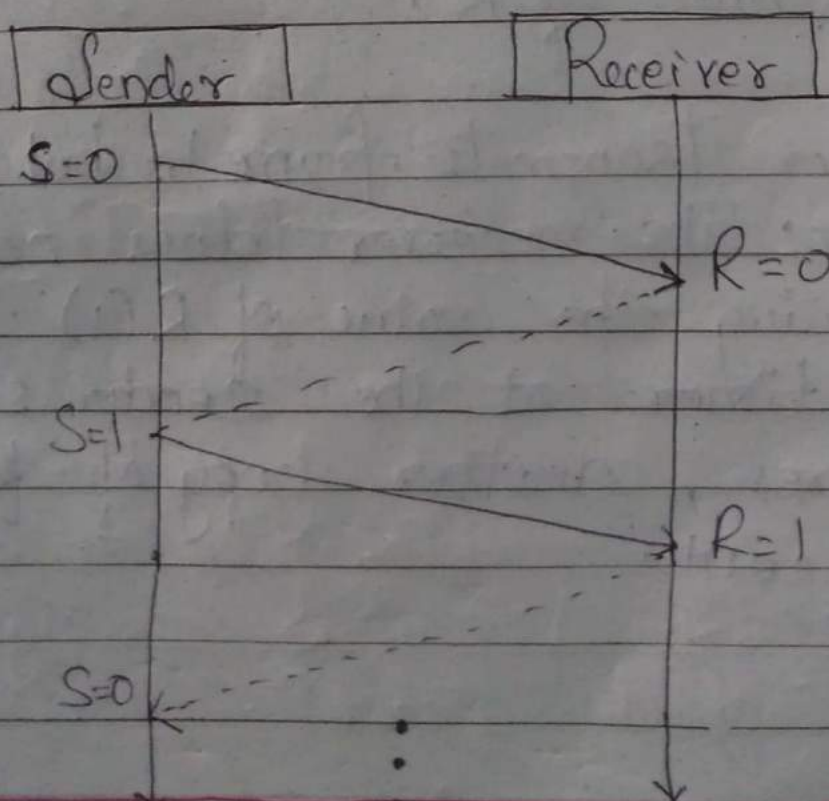 Sender Receiver
S=0
R=0
S=1
R=1
S=0